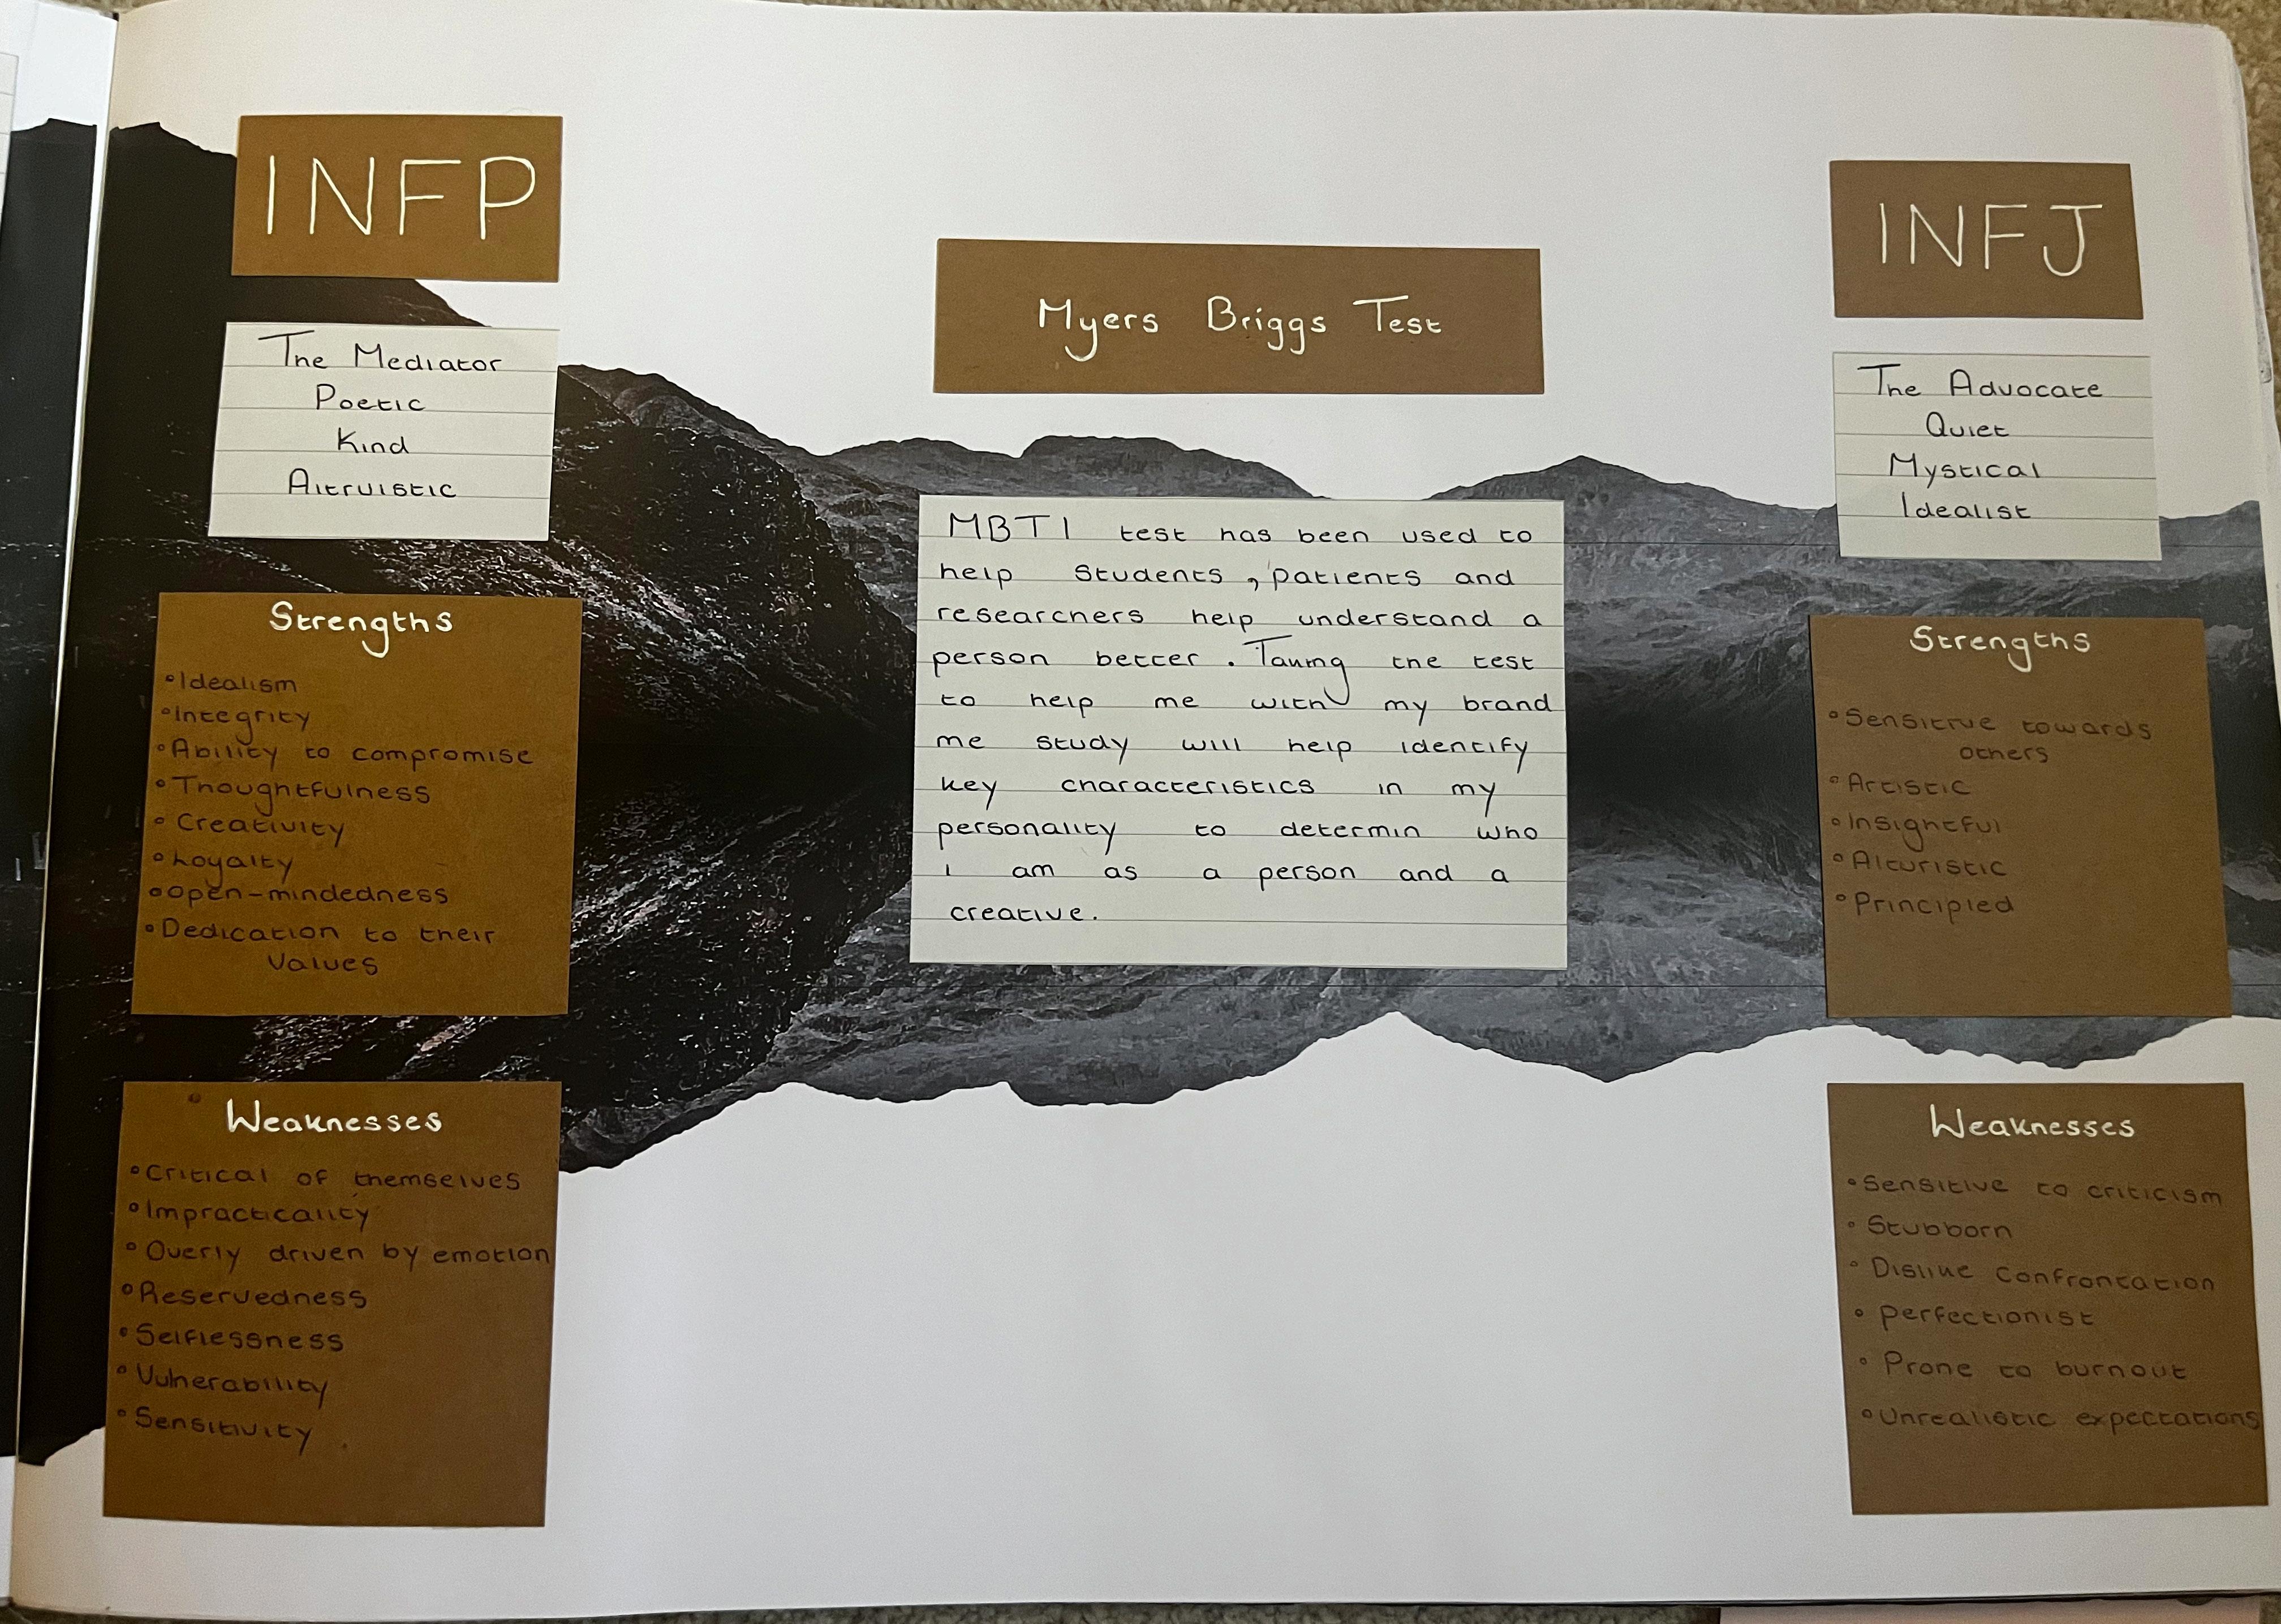 INFP
The Mediator
Poetic
Kind
Altruistic
Strengths
•Idealism
•Integrity
•Ability to compromise
•Thoughtfulness
•Creativity
•Loyalty
•Open-mindedness
•Dedication to their
Values
Weaknesses
•Critical of themselves
•Impracticality
•Overly driven by emotion
•Reservedness
•Selflessness
•Vulnerability
•Sensitivity
Myers Briggs Test
MBTI test has been used to
help Students, patients and
researchers help understand a
person better. Taking the test
to help me with my brand
me study will help identify
key characteristics in my
personality to determin who
i am as a person and a
creative.
INFJ
The Advocate
Quiet
Mystical
Idealist
Strengths
•Sensitive towards
others
•Artistic
•Insightful
•Alturistic
•Principled
Weaknesses
•Sensitive to criticism
•Stubborn
•Dislike confrontation
•Perfectionist
•Prone to burnout
•Unrealistic expectations